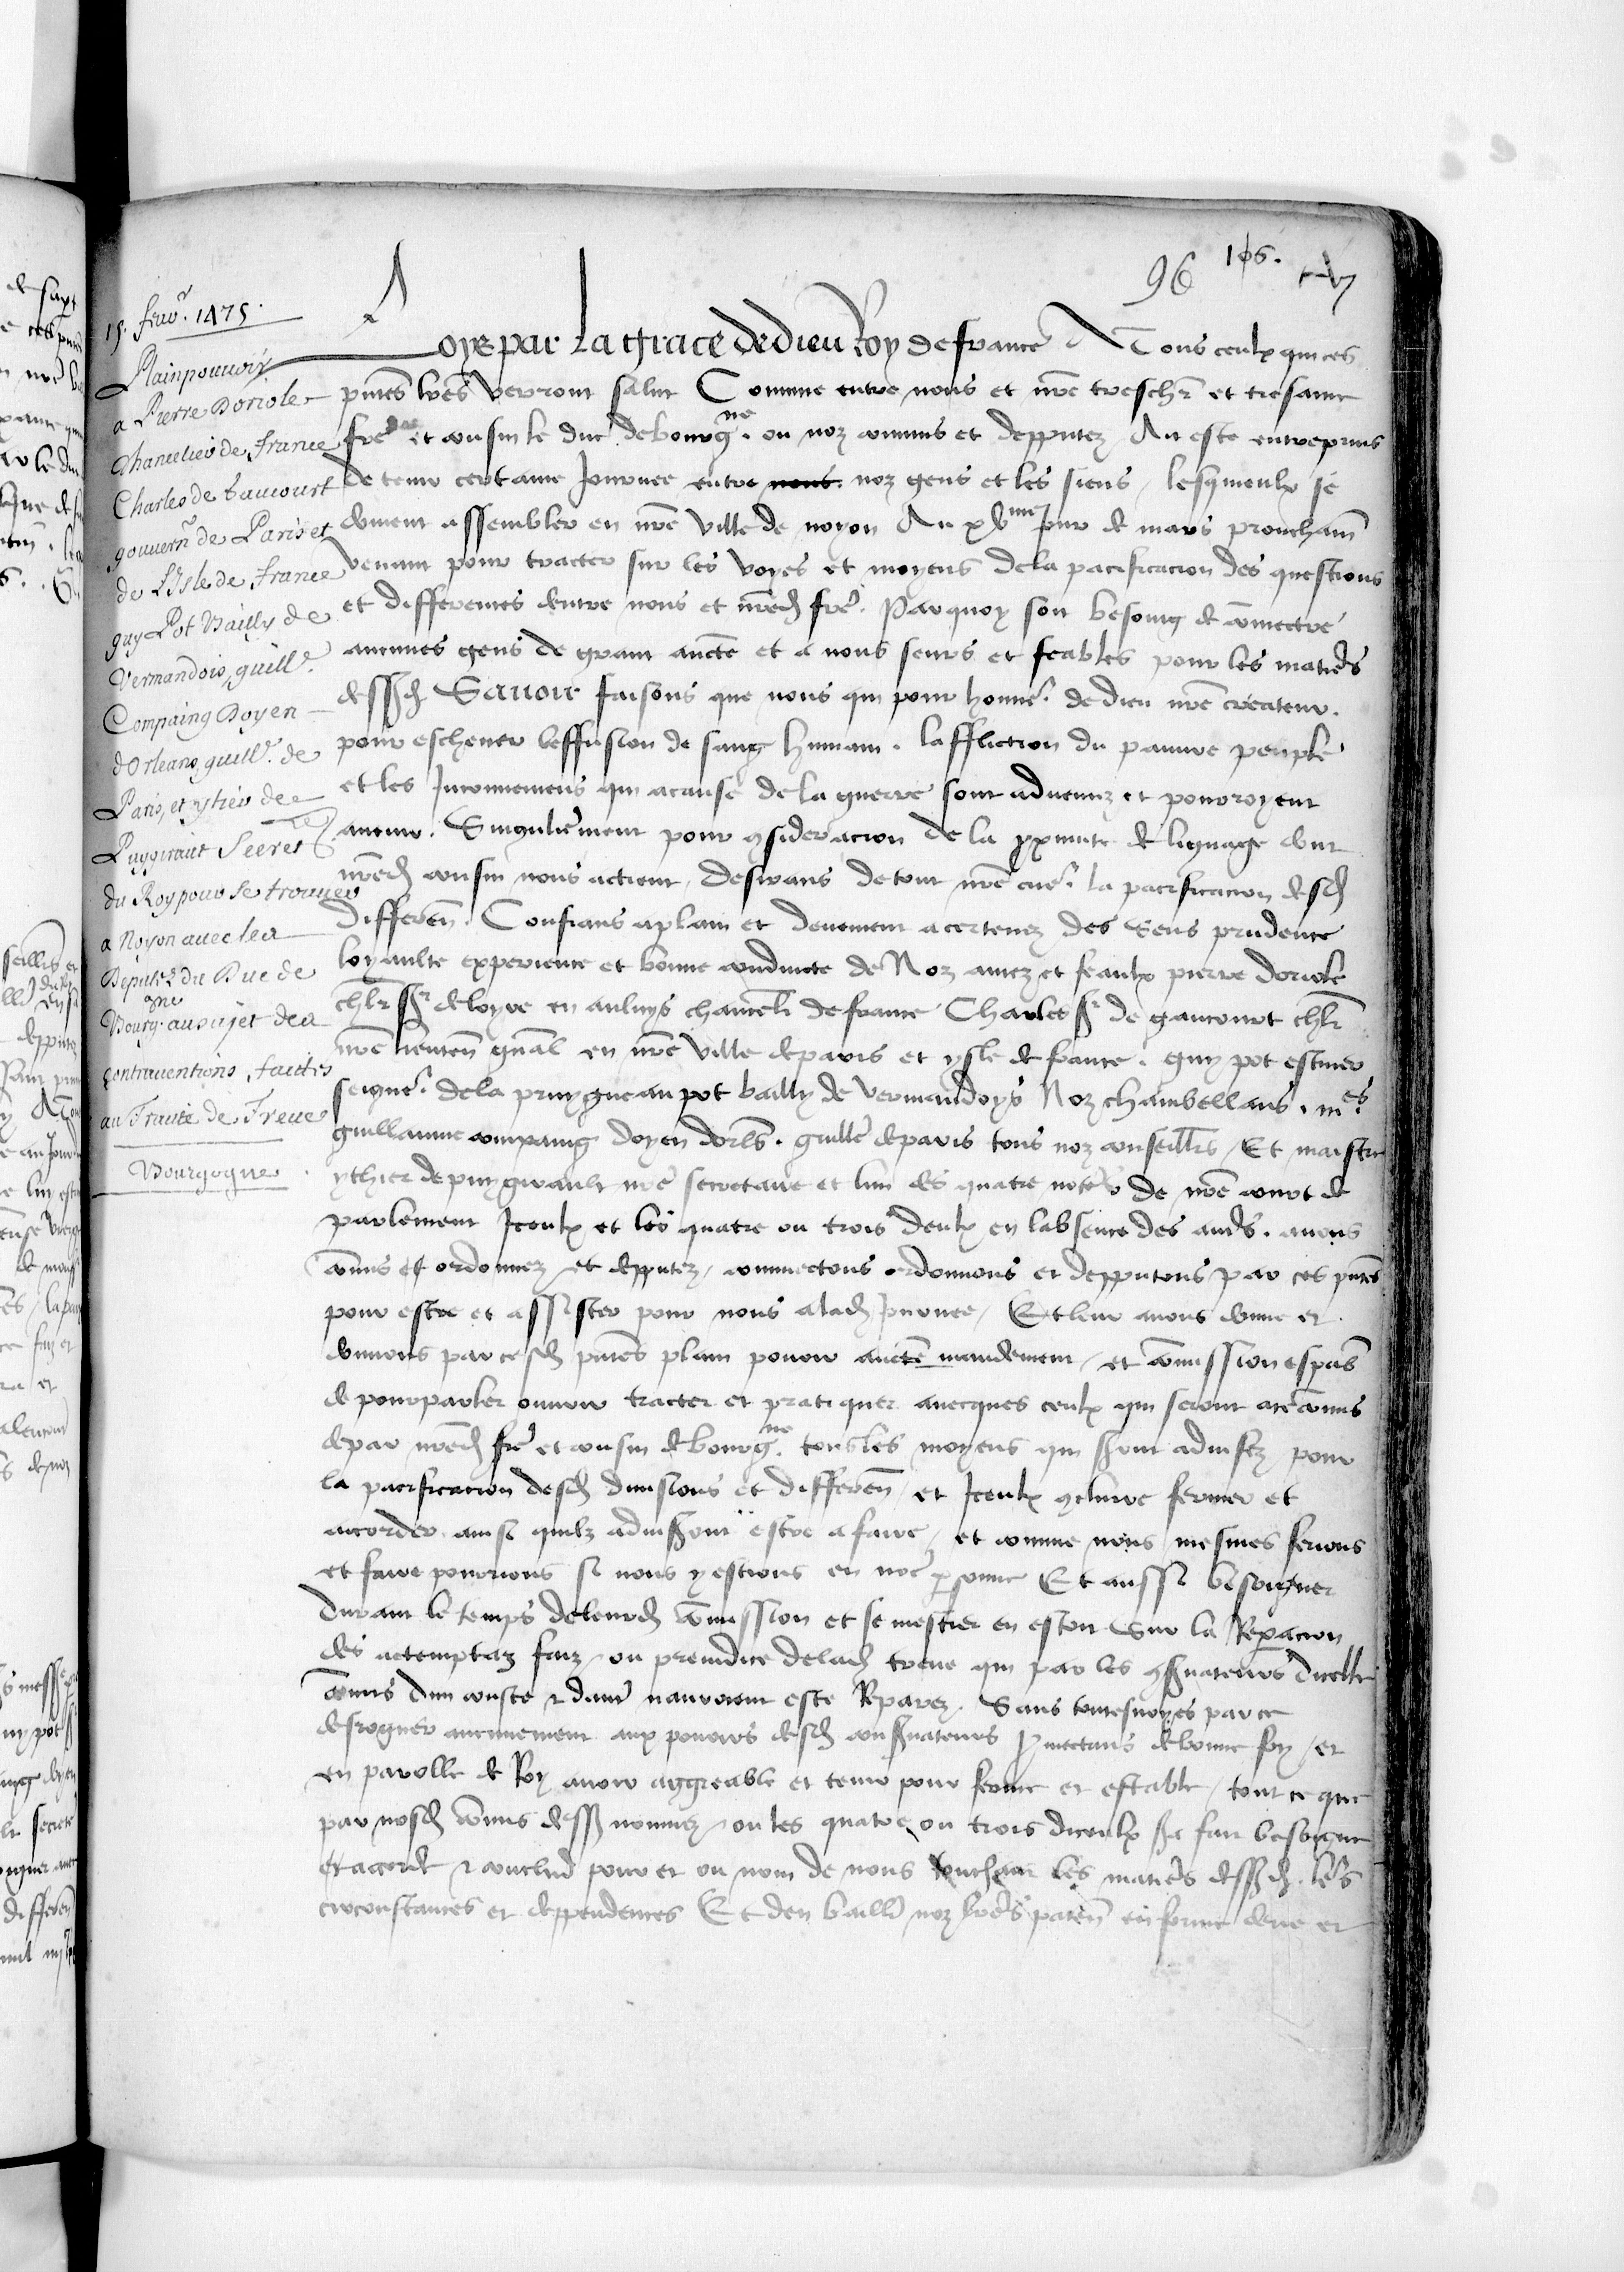 96 106.
15. feuv. 1475.
Plainpouuoir
a Pierre Doriole
Chancelier de france
Charles de Gaucourt
gouuern de Paris et
de L'Isle de france
guy Pot Bailly de
Vermandois, guill.
Compaing Doyen
dOrleans, guill. de
Paris, et ythier de
Puygiraut Secret.
du Roy pour se trouuer
a Noyon auec les
Deputez du Duc de
Bourg.gne au sujet des
contrauentions faites
au Traité de Treue
Bourgogne
Loys par La grace de dieu Roy de france A Tous ceulx qui ces
pntes lres verront salut Comme entre nous et nre treschr et tresame
fre et cousin le duc de bourg.ne ou noz commis et depputez Ait este entreprins
de tenir certaine Journee entre nous noz gens et les siens / lesqueulx se
doiuent assembler en nre ville de noyon Au xv.me Jour de mars prouchain
venant pour tracter sur les voyes et moyens de la pacificacion des questions
et differences dentre nous et nred fre. Parquoy soit besoing de cmectre
aucunes gens de grant aucte et a nous seurs et feables pour les matieres
dessd Sauoir faisons que nous qui pour honne.r de dieu nre createur.
pour escheuer leffusion de sang humain. laffliction du pauure peuple
et les Inconueniens qui a cause de la guerre sont aduenuz et pourroyent
auenir. Singulierment pour csideracion de la pximite de lignage dont
nred cousin nous actient, desirans de tout nre cue.r la pacificacion desd
differen. Confians aplain et deuement acertenez des sens prudence
loyaulte experience et bonne conduicte de Noz amez et feaulx pierre doriole
chlr sr de loyre en aulnys chancel de france Charles sr de gaucourt chlr
nre lieuten gnal en nre ville de paris et ysle de france. guy pot escuier
seigne.r de la pruygne au pot bailly de vermandoys Noz chambellans. mes
guillaume compaing doyen dorls. guille de paris tous noz conseillrs / Et maistre
ythier de puygirault nre secretaire et lun des quatre notes de nre court de
parlement Iceulx et les quatre ou trois deulx en labsence des autres. auons
cmis et ordonnez et depputez / commectons ordonnons et depputons par ces pntes
pour estre et assister pour nous a lad Journee / Et leur auons donne et
donnons par cesd pntes plain pouoir aucte mandement / et cmission espal
de pourparler ouurir tracter et pratiquer auecques ceulx qui seront a ce cmis
de par nred fre et cousin de bourg.ne tous les moyens qui sront aduisez pour
la pacificacion desd diuisions et differen / et Iceulx cclurre fermer et
accorder ainsi quilz aduisront estre a faire / et comme nous mesmes ferions
et faire pourrions se nous y estions en nre psonne Et aussi besoigner
durant le temps de leurd cmission et se mestier en estoit Sur la Repacion
des actemptaz faiz / ou preiudice de lad treue qui par les csruateurs dicelle
cmis dun couste & dautre nauroient este Reparez. Sans toutesuoyes par ce
desroguer aucunement aux pouoirs desd consruateurs pmectans de bonne foy / et
en parolle de Roy auoir aggreable et tenir pour ferme et estable / tout ce que
par nosd cmis dess nommez / ou les quatre ou trois diceulx sra fait besoigne
et acorde & conclud pour et ou nom de nous touchant les matieres dessd. leurs
circonstances et deppendences Et den baillr noz lres paten en forme deue et